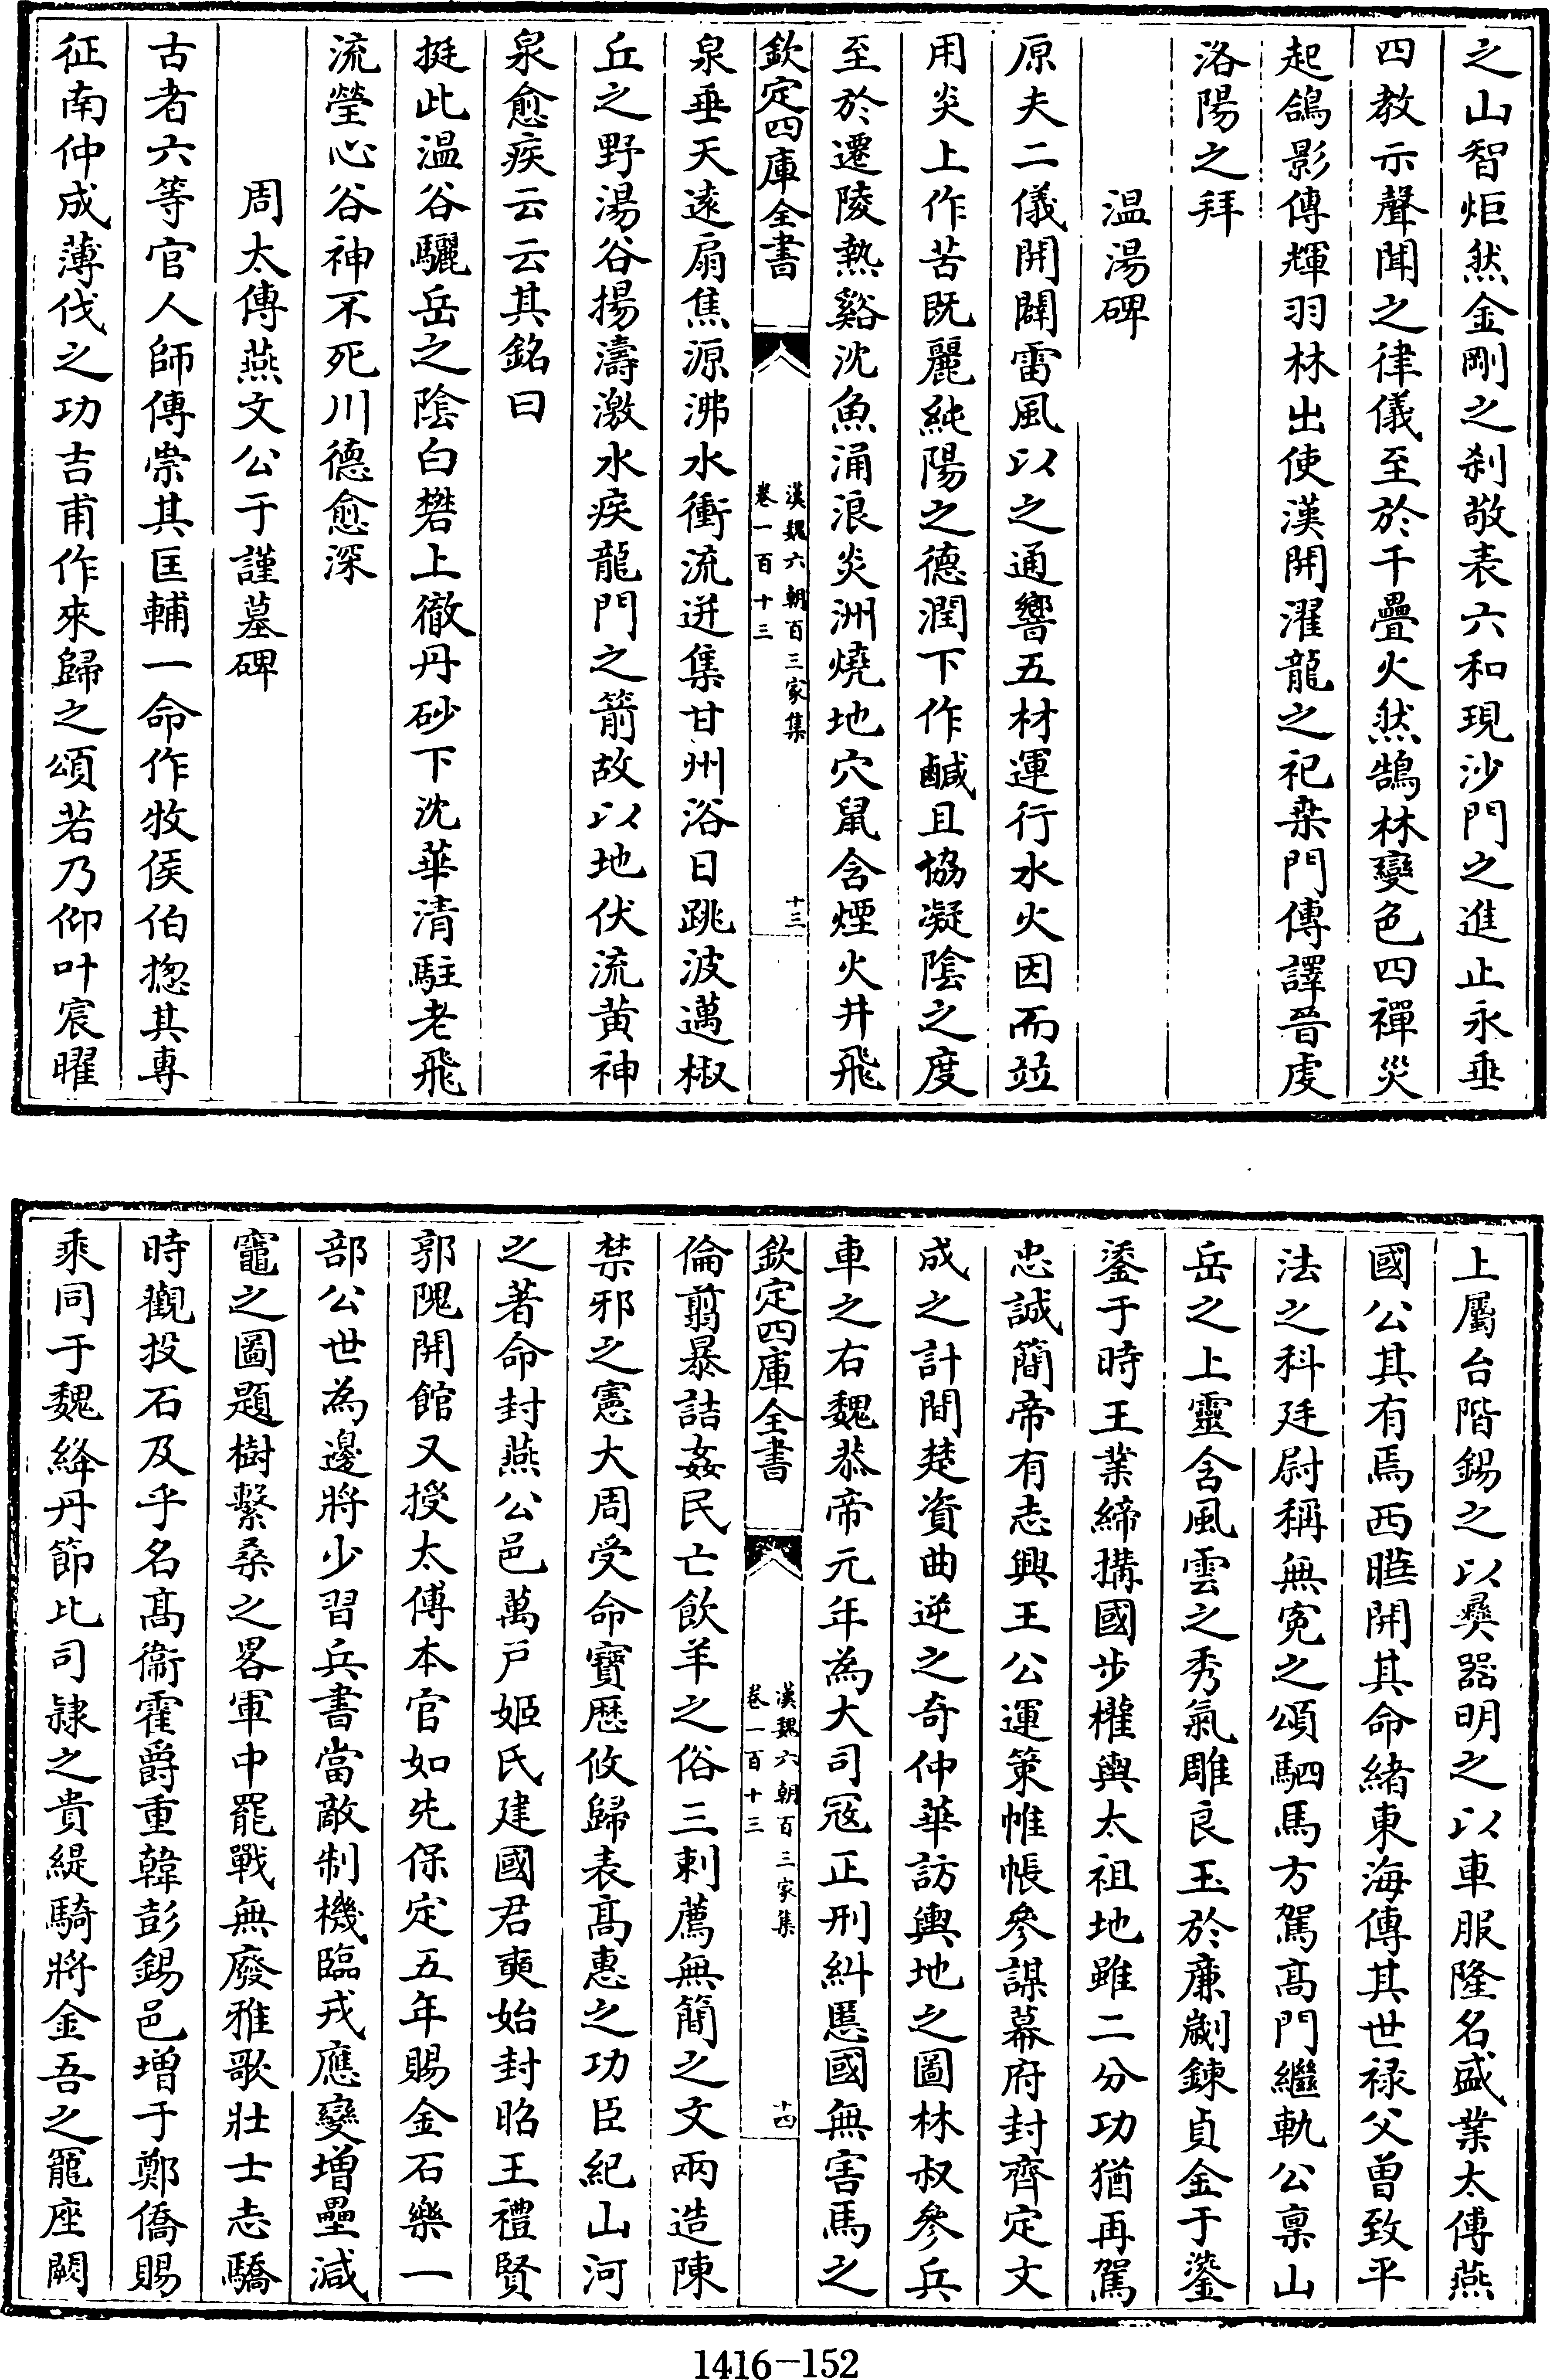 之山智炬然金剛之刹敬表六和現沙門之進止永垂
四教示聲聞之律儀至於千疊火然鵠林變色四禪災
起鴿影傳輝羽林出使漢開濯龍之祀桒門傳譯晉虔
洛陽之拜
温湯碑
原夫二儀開闢雷風以之通響五材運行水火因而竝
用炎上作苦既麗純陽之德潤下作鹹且協凝陰之度
至於遷陵熱谿沈魚涌浪炎洲燒地穴鼠含煙火井飛
欽定四庫全書
漢魏六朝百三家集
卷一百十三
十三
泉垂天遠扇焦源沸水衝流迸集甘州浴日跳波邁椒
丘之野湯谷揚濤激水疾龍門之箭故以地伏流黄神
泉愈疾云云其銘曰
挺此温谷驪岳之陰白礬上徹丹砂下沈華清駐老飛
流瑩心谷神不死川德愈深
周太傅燕文公于謹墓碑
古者六等官人師傅崇其匡輔一命作牧侯伯揔其專
征南仲成薄伐之功吉甫作來歸之頌若乃仰叶宸曜
上屬台階錫之以彝器明之以車服隆名盛業太傅燕
國公其有焉西曁開其命緒東海傳其世禄父曾致平
法之科廷尉稱無寃之頌駟馬方駕髙門繼軌公禀山
岳之上靈含風雲之秀氣雕良玉於亷劌錬貞金于鎏
鋈于時王業締搆國步權輿太祖地雖二分功猶再駕
忠誠簡帝有志興王公運策帷帳參謀幕府封齊定文
成之計間楚資曲逆之奇仲華訪輿地之圖林叔參兵
車之右魏恭帝元年為大司冦正刑糾慝國無害馬之
欽定四庫全書
漢魏六朝百三家集
卷一百十三
十四
倫翦暴詰姦民亡飲羊之俗三刺薦無簡之文兩造陳
禁邪之憲大周受命寶厯攸歸表髙惠之功臣紀山河
之著命封燕公邑萬戸姬氏建國君奭始封昭王禮賢
郭隗開館又授太傅本官如先保定五年賜金石樂一
部公世為邊將少習兵書當敵制機臨戎應變增壘減
竈之圖題樹繫桑之畧軍中罷戰無廢雅歌壯士志驕
時觀投石及乎名髙衞霍爵重韓彭錫邑增于鄭僑賜
乘同于魏絳丹節比司隷之貴緹騎將金吾之寵座闕
1416—152